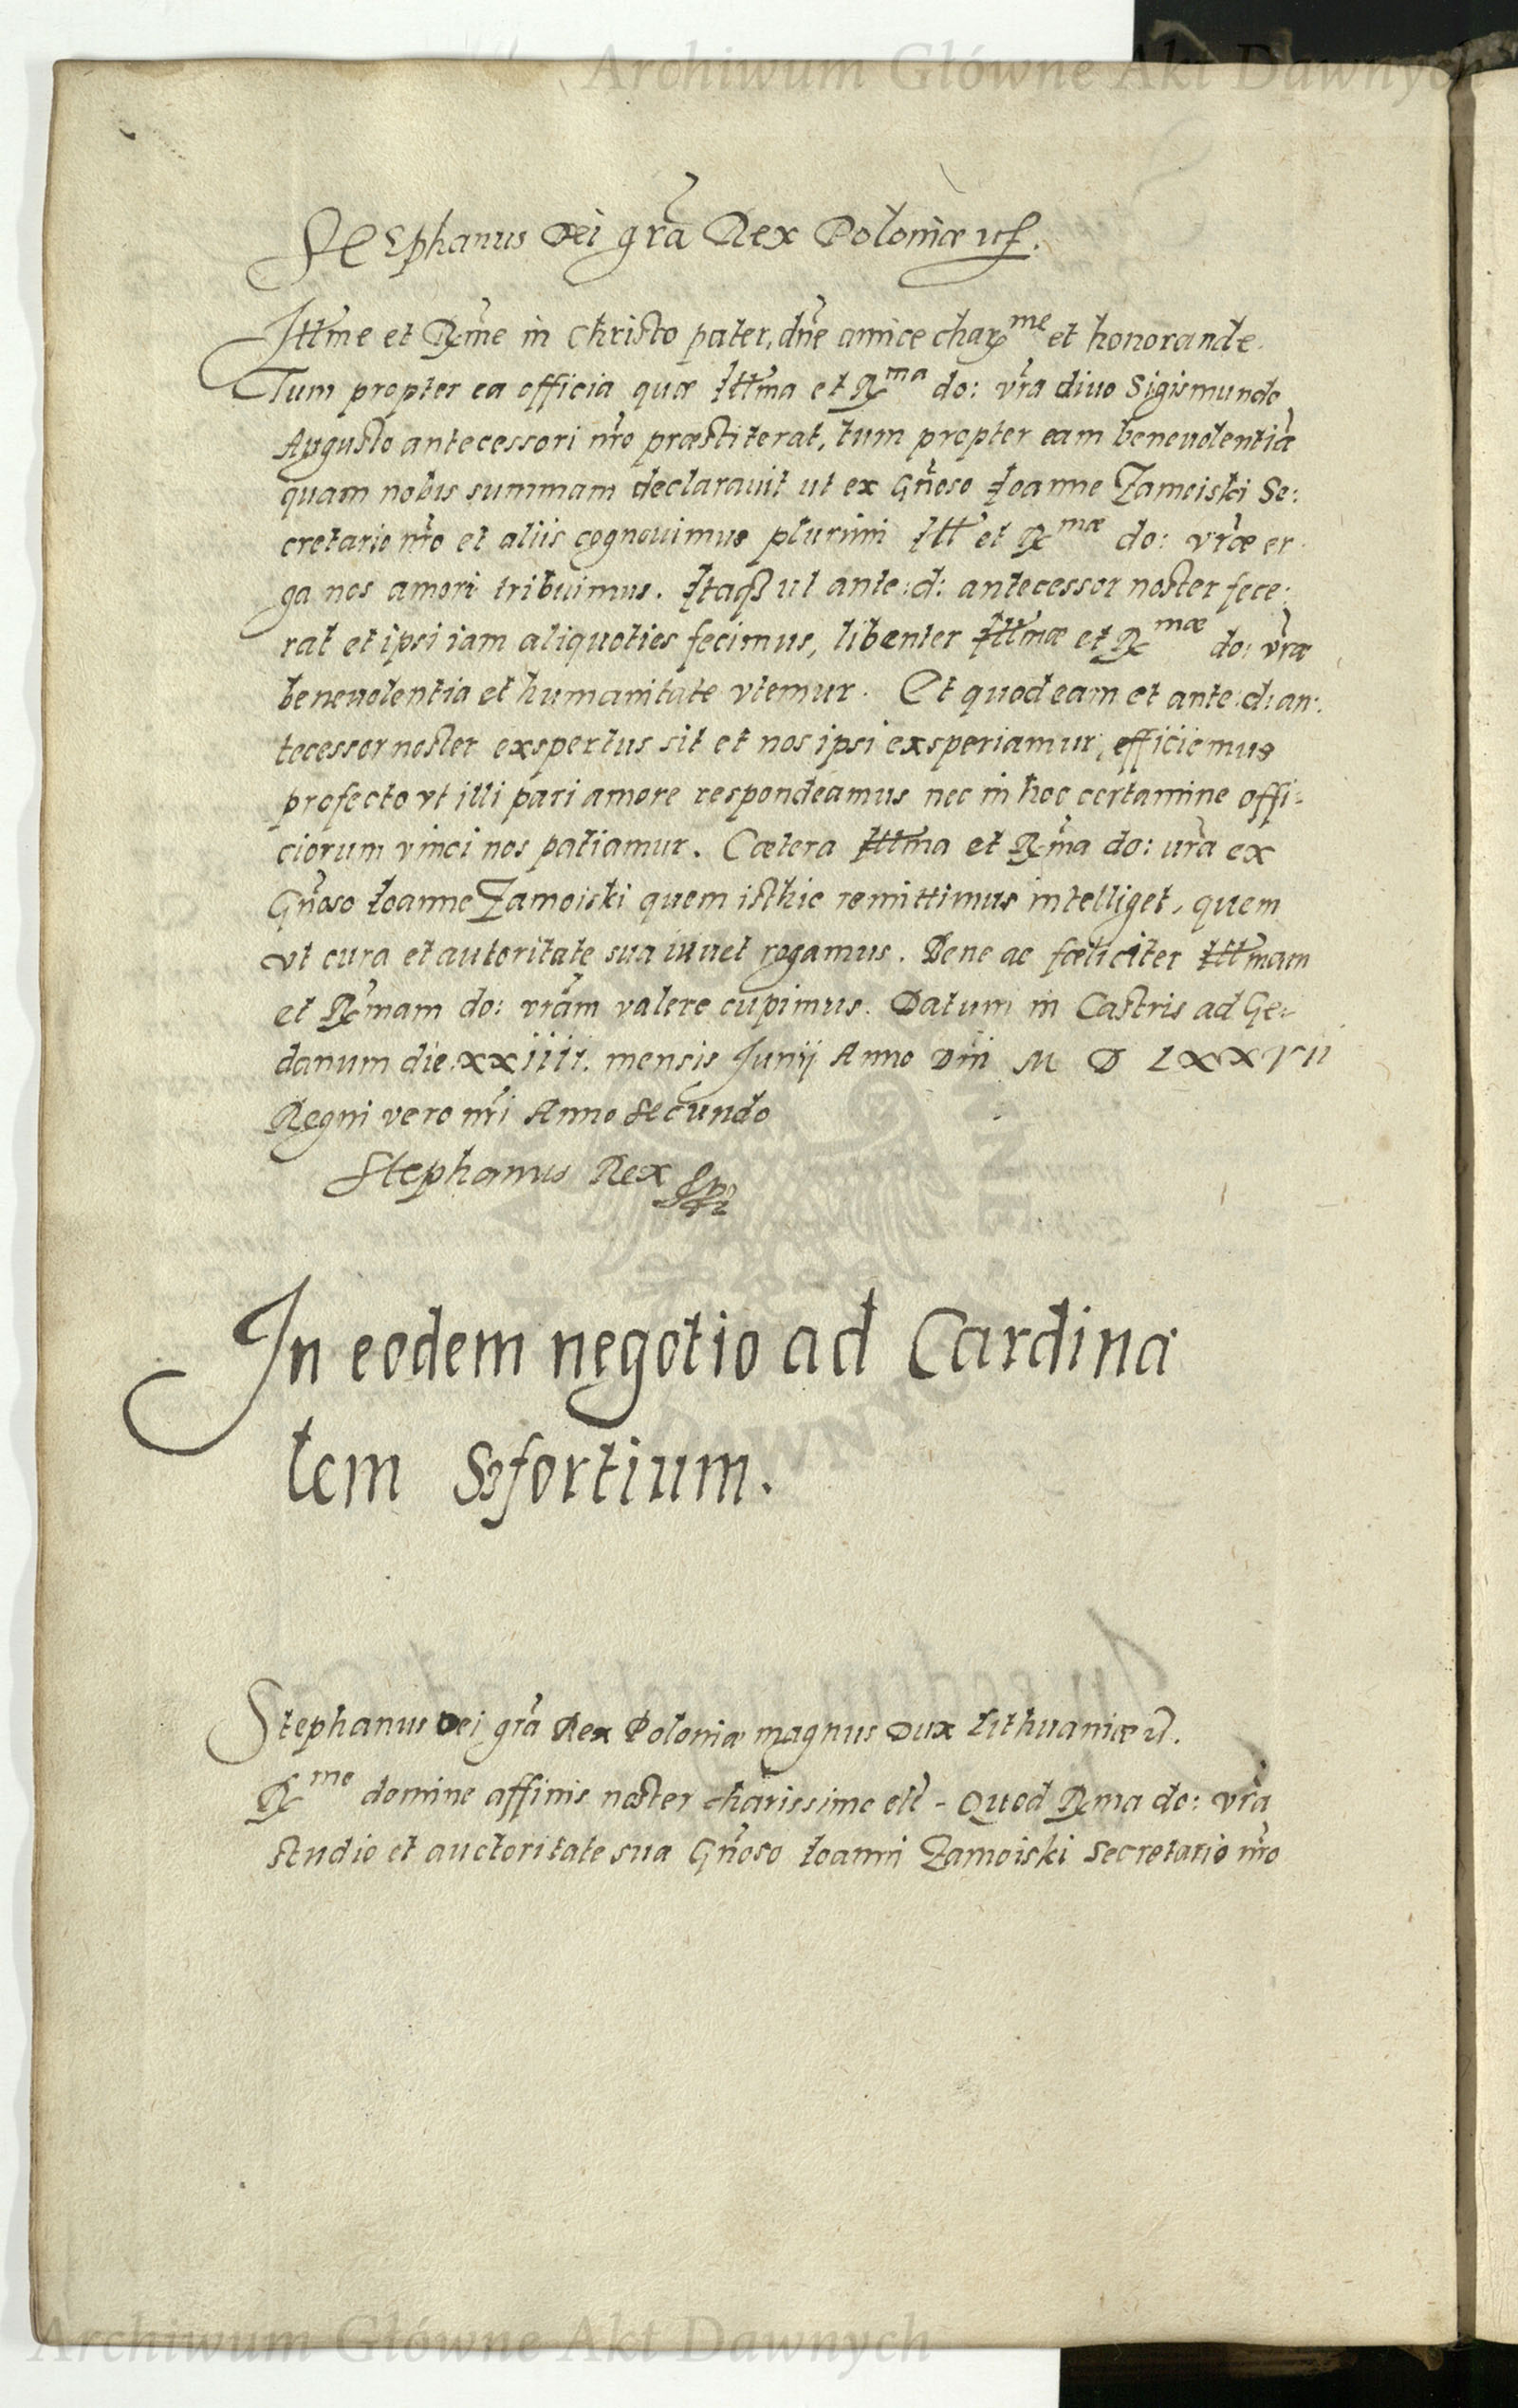 Archiwum Główne Akt Dawnych
Stephanus Dei gra Rex Poloniæ
Illme et Rme in Christo pater, dne amice char^me et honorande.
Tum propter ea officia quæ Illma et R^ma do: vra diuo Sigismundo
Augusto antecessori nro præstiterat, tum propter eam beneuolentiã
quam nobis summam declarauit ut ex Gnoso Ioanne Zamoiski Se:
cretario nro et aliis cognouimus plurimi Ill et R^mæ do: vræ er
ga nos amori tribuimus. Itaq ut ante:d: antecessor noster fece:
rat et ipsi iam aliquoties fecimus, libenter Illmæ et R^mæ do: vræ
beneuolentia et humanitate vtemur. Et quod eam et ante:d: an:
tecessor noster expertus sit et nos ipsi exsperiamur, efficiemus
profecto vt illi pari amore respondeamus nec in hoc certamine offi:
ciorum vinci nos patiamur. Cætera Illma et Rma do: ura ex
Gnoso Ioanne Zamoiski quem isthic remittimus intelliget, quem
vt cura et autoritate sua iuuet rogamus. Bene ac fœliciter Illmam
et Rmam do: vram valere cupimus. Datum in Castris ad Ge:
danum die xxiiii. mensis Junij Anno Dni M D LXXVII
Regni vero nri Anno Secundo
Stephanus Rex
In eodem negotio ad Cardina
lem Sfortium.
Stephanus Dei gra Rex Poloniæ magnus Dux Lithuaniæ
R^me domine affinis noster charissime etc - Quod Rma do: vra
studio et auctoritate sua Gnoso Ioanni Zamoiski Secretario nro
Archiwum Główne Akt Dawnych